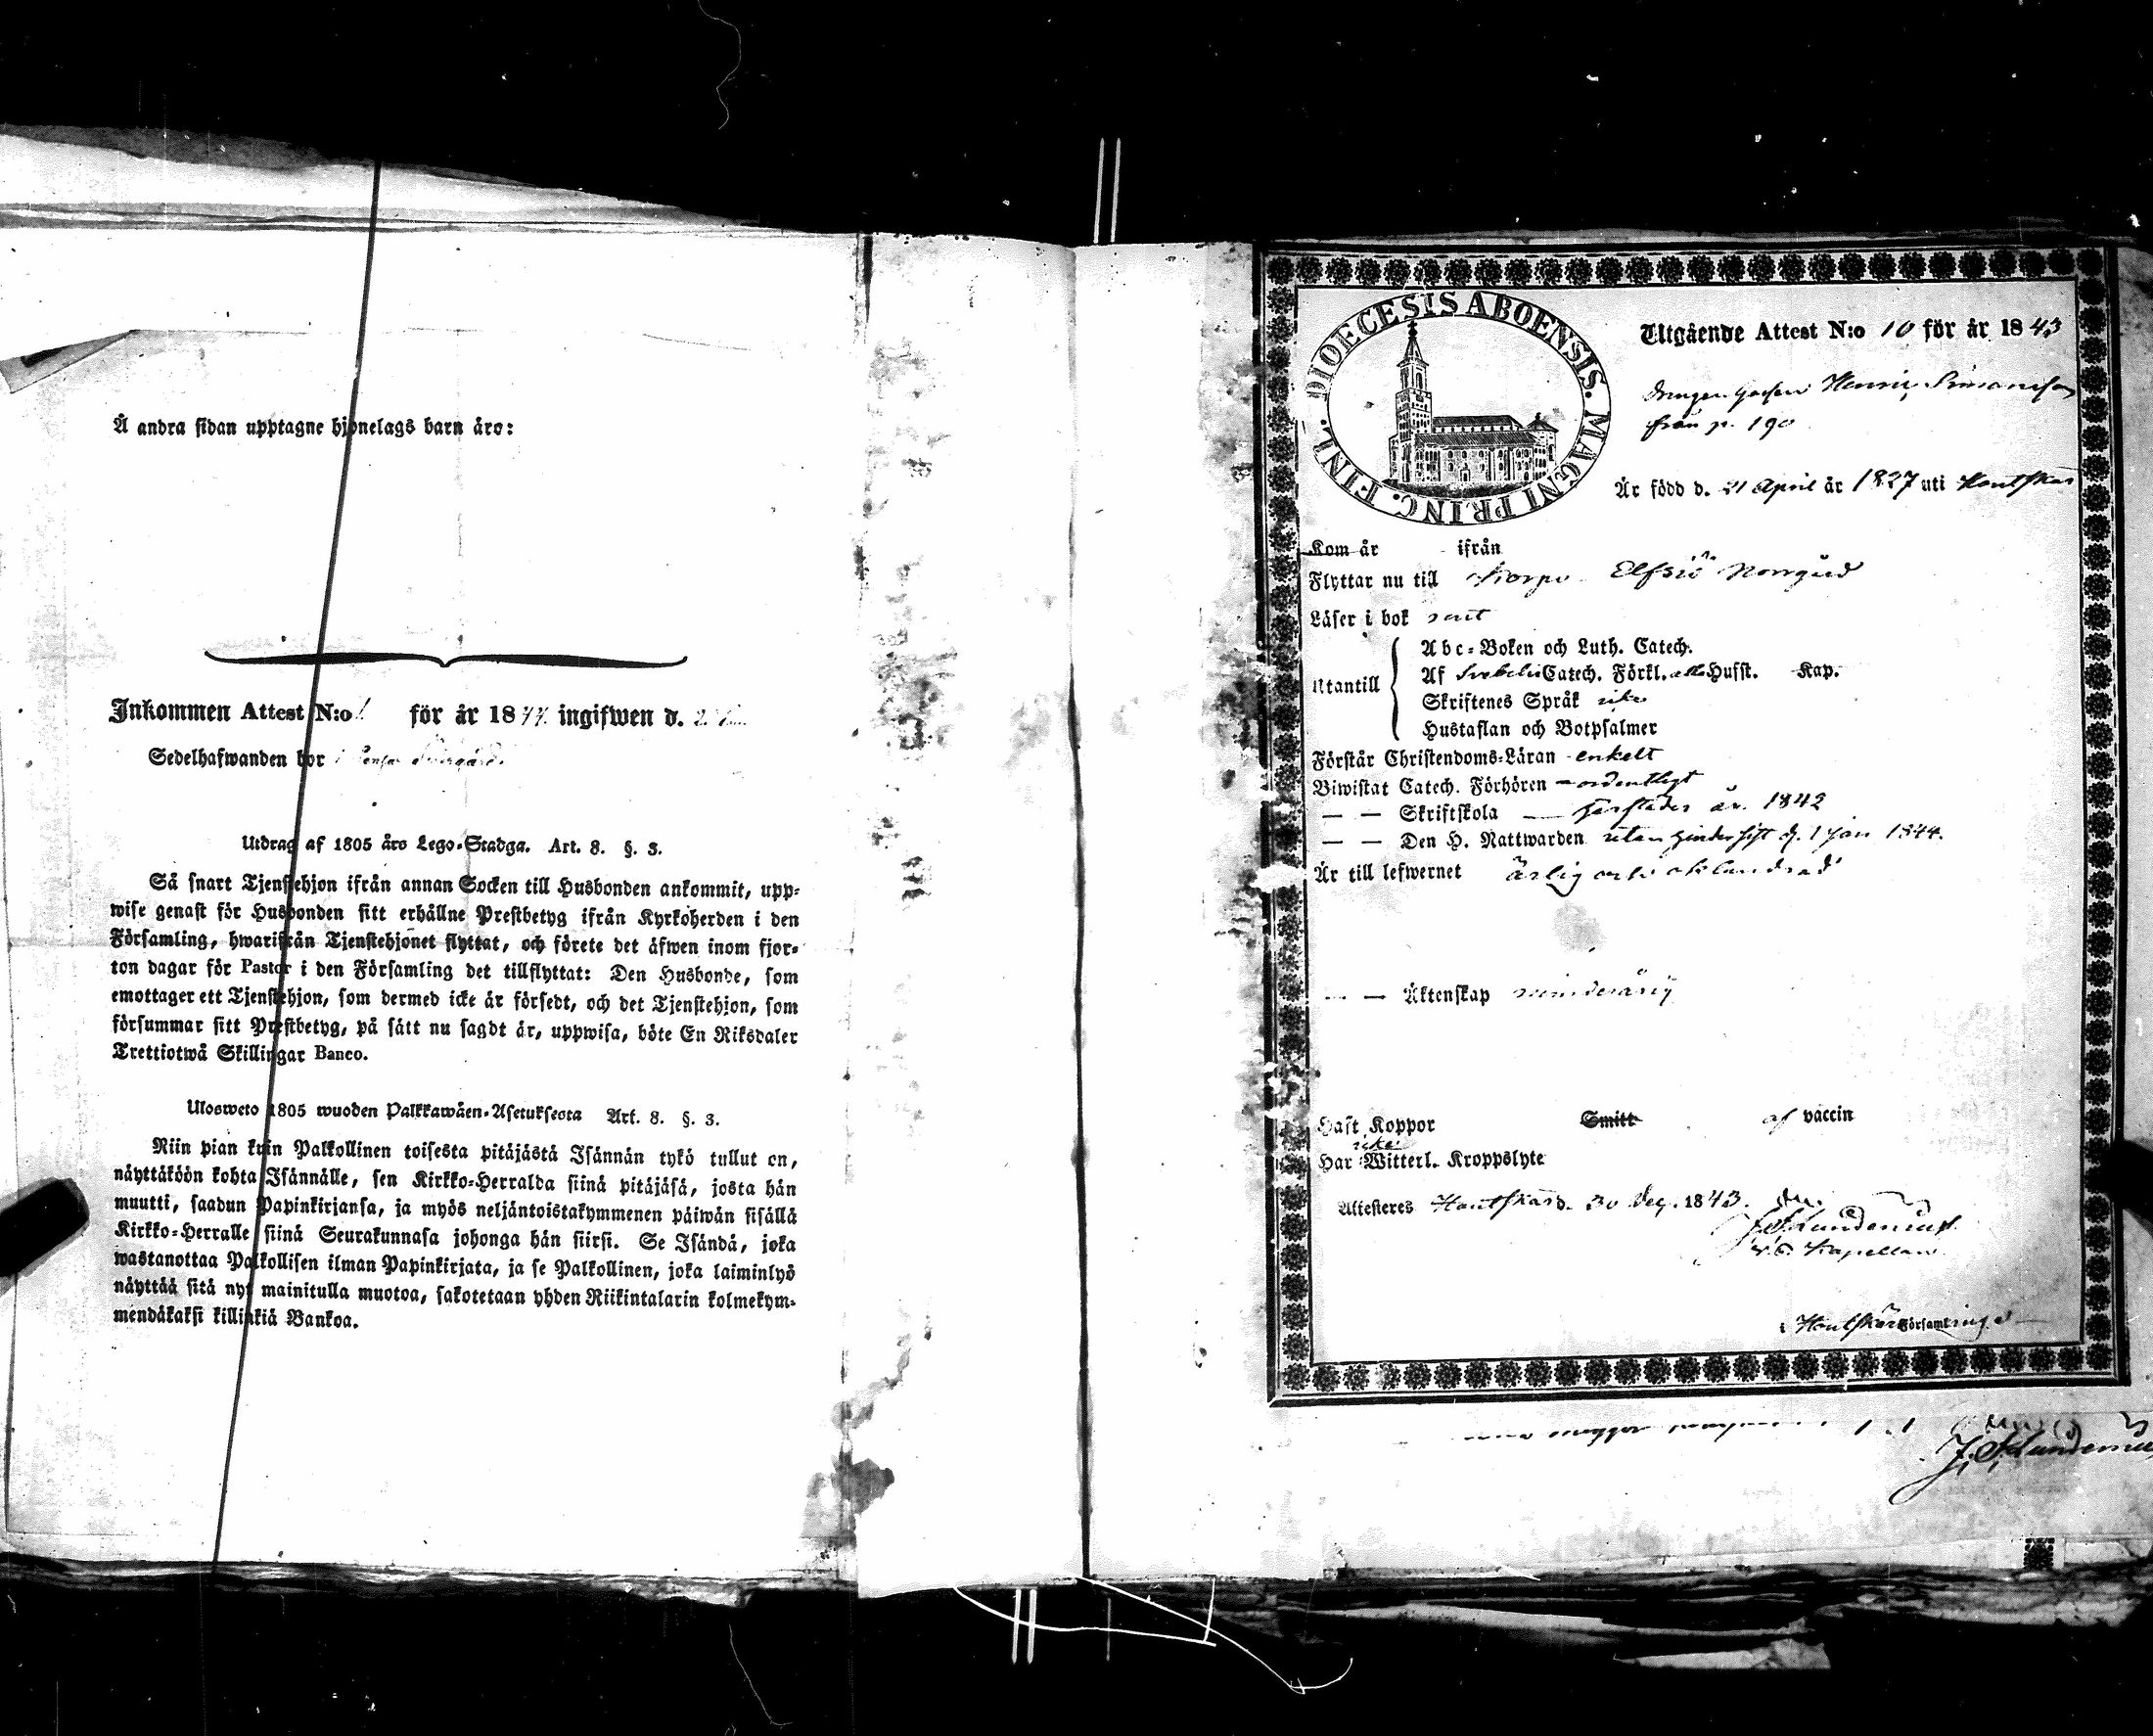 Å andra sidan upptagne hjonelags barn äro:
Inkommen Attest N:o 1 för år 1844 ingifwen d. 2
Sedelhafwanden bor i
Utdrag af 1805 års Lego-Stadga. Art. 8. §. 3.
Så snart Tjenstehjon ifrån annan Socken till Husbonden ankommit, upp-
wise genast för Husbonden sitt erhållne Prestbetyg ifrån Kyrkoherden i den
Församling, hwarifrån Tjenstehjonet flyttat, och förete det äfwen inom fjor-
ton dagar för Pastor i den Församling det tillflyttat: Den Husbonde, som
emottager ett Tjenstehjon, som dermed icke är försedt, och det Tjenstehjon, som
försummar sitt Prestbetyg, på sätt nu sagdt är, uppwisa, böte En Riksdaler
Trettiotwå Skillingar Banco.
Ulosweto 1805 wuoden Palkkawäen-Asetuksesta Art. 8. §. 3.
Niin pian kuin Palkollinen toisesta pitäjästä Isännän tykö tullut on,
näyttäköön kohta Isännälle, sen Kirkko-Herralda siinä pitäjäsä, josta hän
muutti, saadun Papinkirjansa, ja myös neljäntoistakymmenen päiwän sisällä
Kirkko-Herralle siinä Seurakunnasa johonga hän siirsi. Se Isändä, joka
wastanottaa Palkollisen ilman Papinkirjata, ja se Palkollinen, joka laiminlyö
näyttää sitä nyt mainitulla muotoa, sakotetaan yhden Riikintalarin kolmekym-
mendäkaksi killinkiä Bankoa.
DIOECESIS ABOENSIS. MAGNI PRINC. FINL.
Utgående Attest N:o 10 för år 1843
Drengen Henric Simonsson
från p. 190
Är född d. 21 April år 1827 uti Houtskär
Kom år ifrån
Flyttar nu till Korpo Elfsiö Norrgård
Läser i bok rent
Abc-Boken och Luth. Catech.
Utantill Af Svebelii Catech. Förkl. alla Hufst. Kap.
Skriftenes Språk
Hustaflan och Botpsalmer
Förstår Christendoms-Läran enkelt
Biwistat Catech. Förhören ordentligt
— — Skriftskola — år 1842
— — Den H. Nattwarden utan d. 1 Jan 1844.
Är till lefwernet ärlig och oklandrad
— — Äktenskap minderårig
Haft Koppor Smitt af vaccin
Har Witterl. Kroppslyte
Attesteres Houtskär d. 30 Dec. 1843.
J. Lundenius
v. Kapellan
i Houtskärs Församling
J. Lundenius